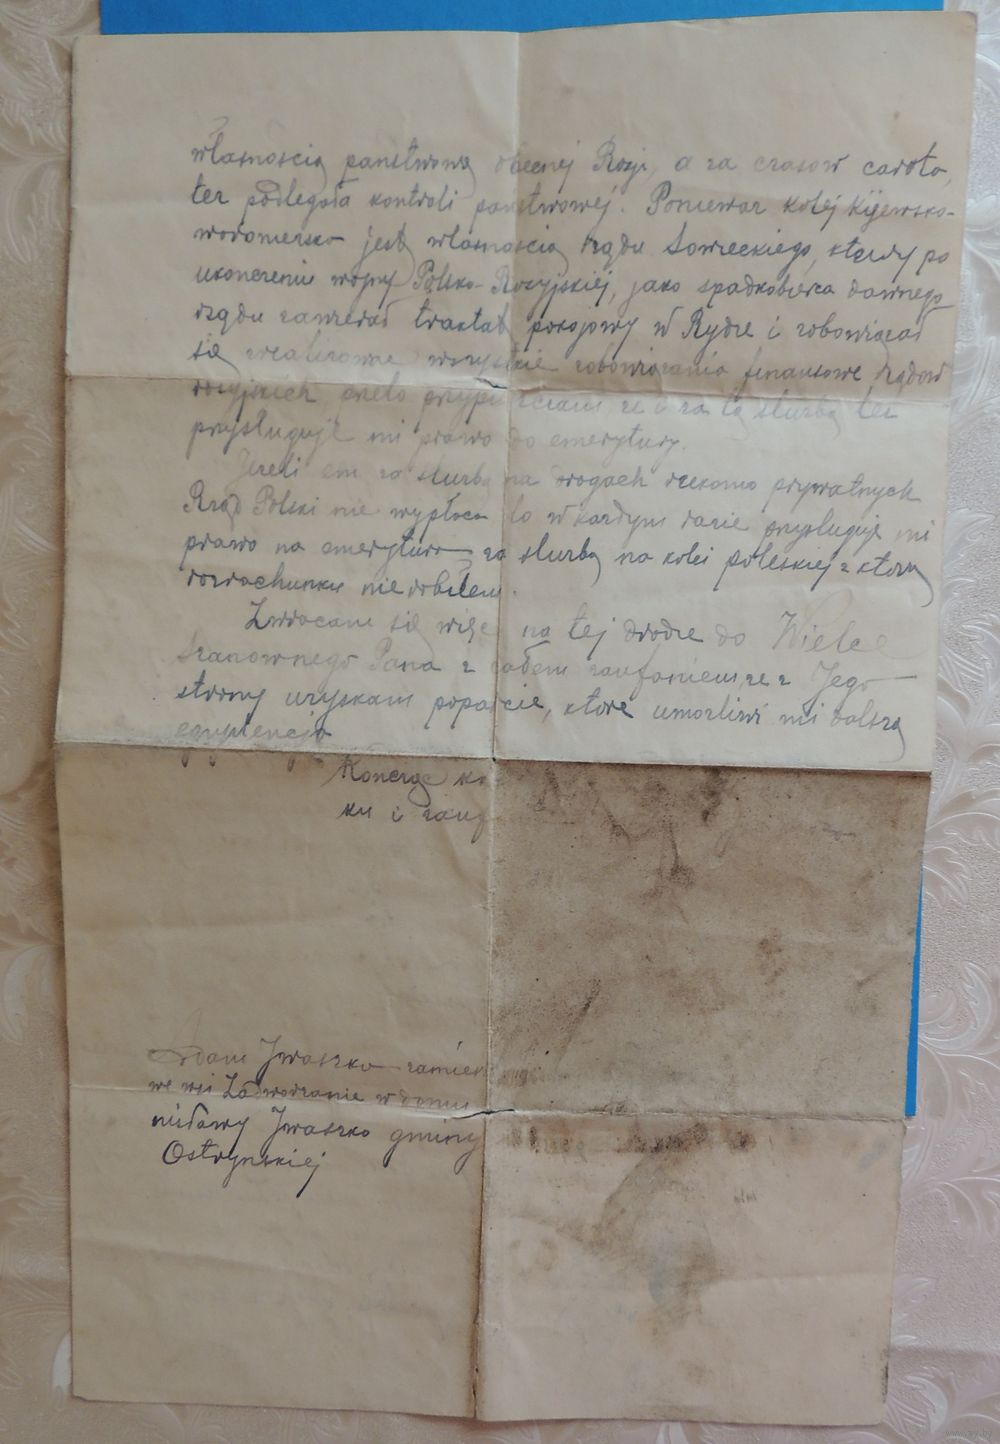 własnością państwową obecnej Rosji, a za czasow carsta,
też podlegała kontroli państwowej. Poniewaz kolej Kijewsko-
woroniersko jest własnością rządu Sowieckiego, który po
ukonczeniu wojny Polsko-Rosyjskiej, jako spadkobierca dawnego
rządu zawierał traktat pokojowy w Rydze i zobowiązał
się wszystkie zobowiązania finansowe rządow
rosyjskich, za tą służbę też
przysługuje mi prawo do emerytury.
Jezeli za służbę na drogach rzekomo prywatnych
Rząd Polski nie wypłaca to w kazdym razie przysługuje mi
prawo na emeryture za służbę na kolei poleskiej z którą
rozrachunku nie robiłem.
Zwracam się więc na tej drodze do Wielce
Szanownego Pana z całem zaufaniem, ze z Jego
strony uzyskam poparcie, które umozliwi mi dalszą
egzystencję
Koncząc
ku i
Adam Jwaszko zamiesz
we wsi w domu
nisławy Jwaszko gminy
Ostrynskiej